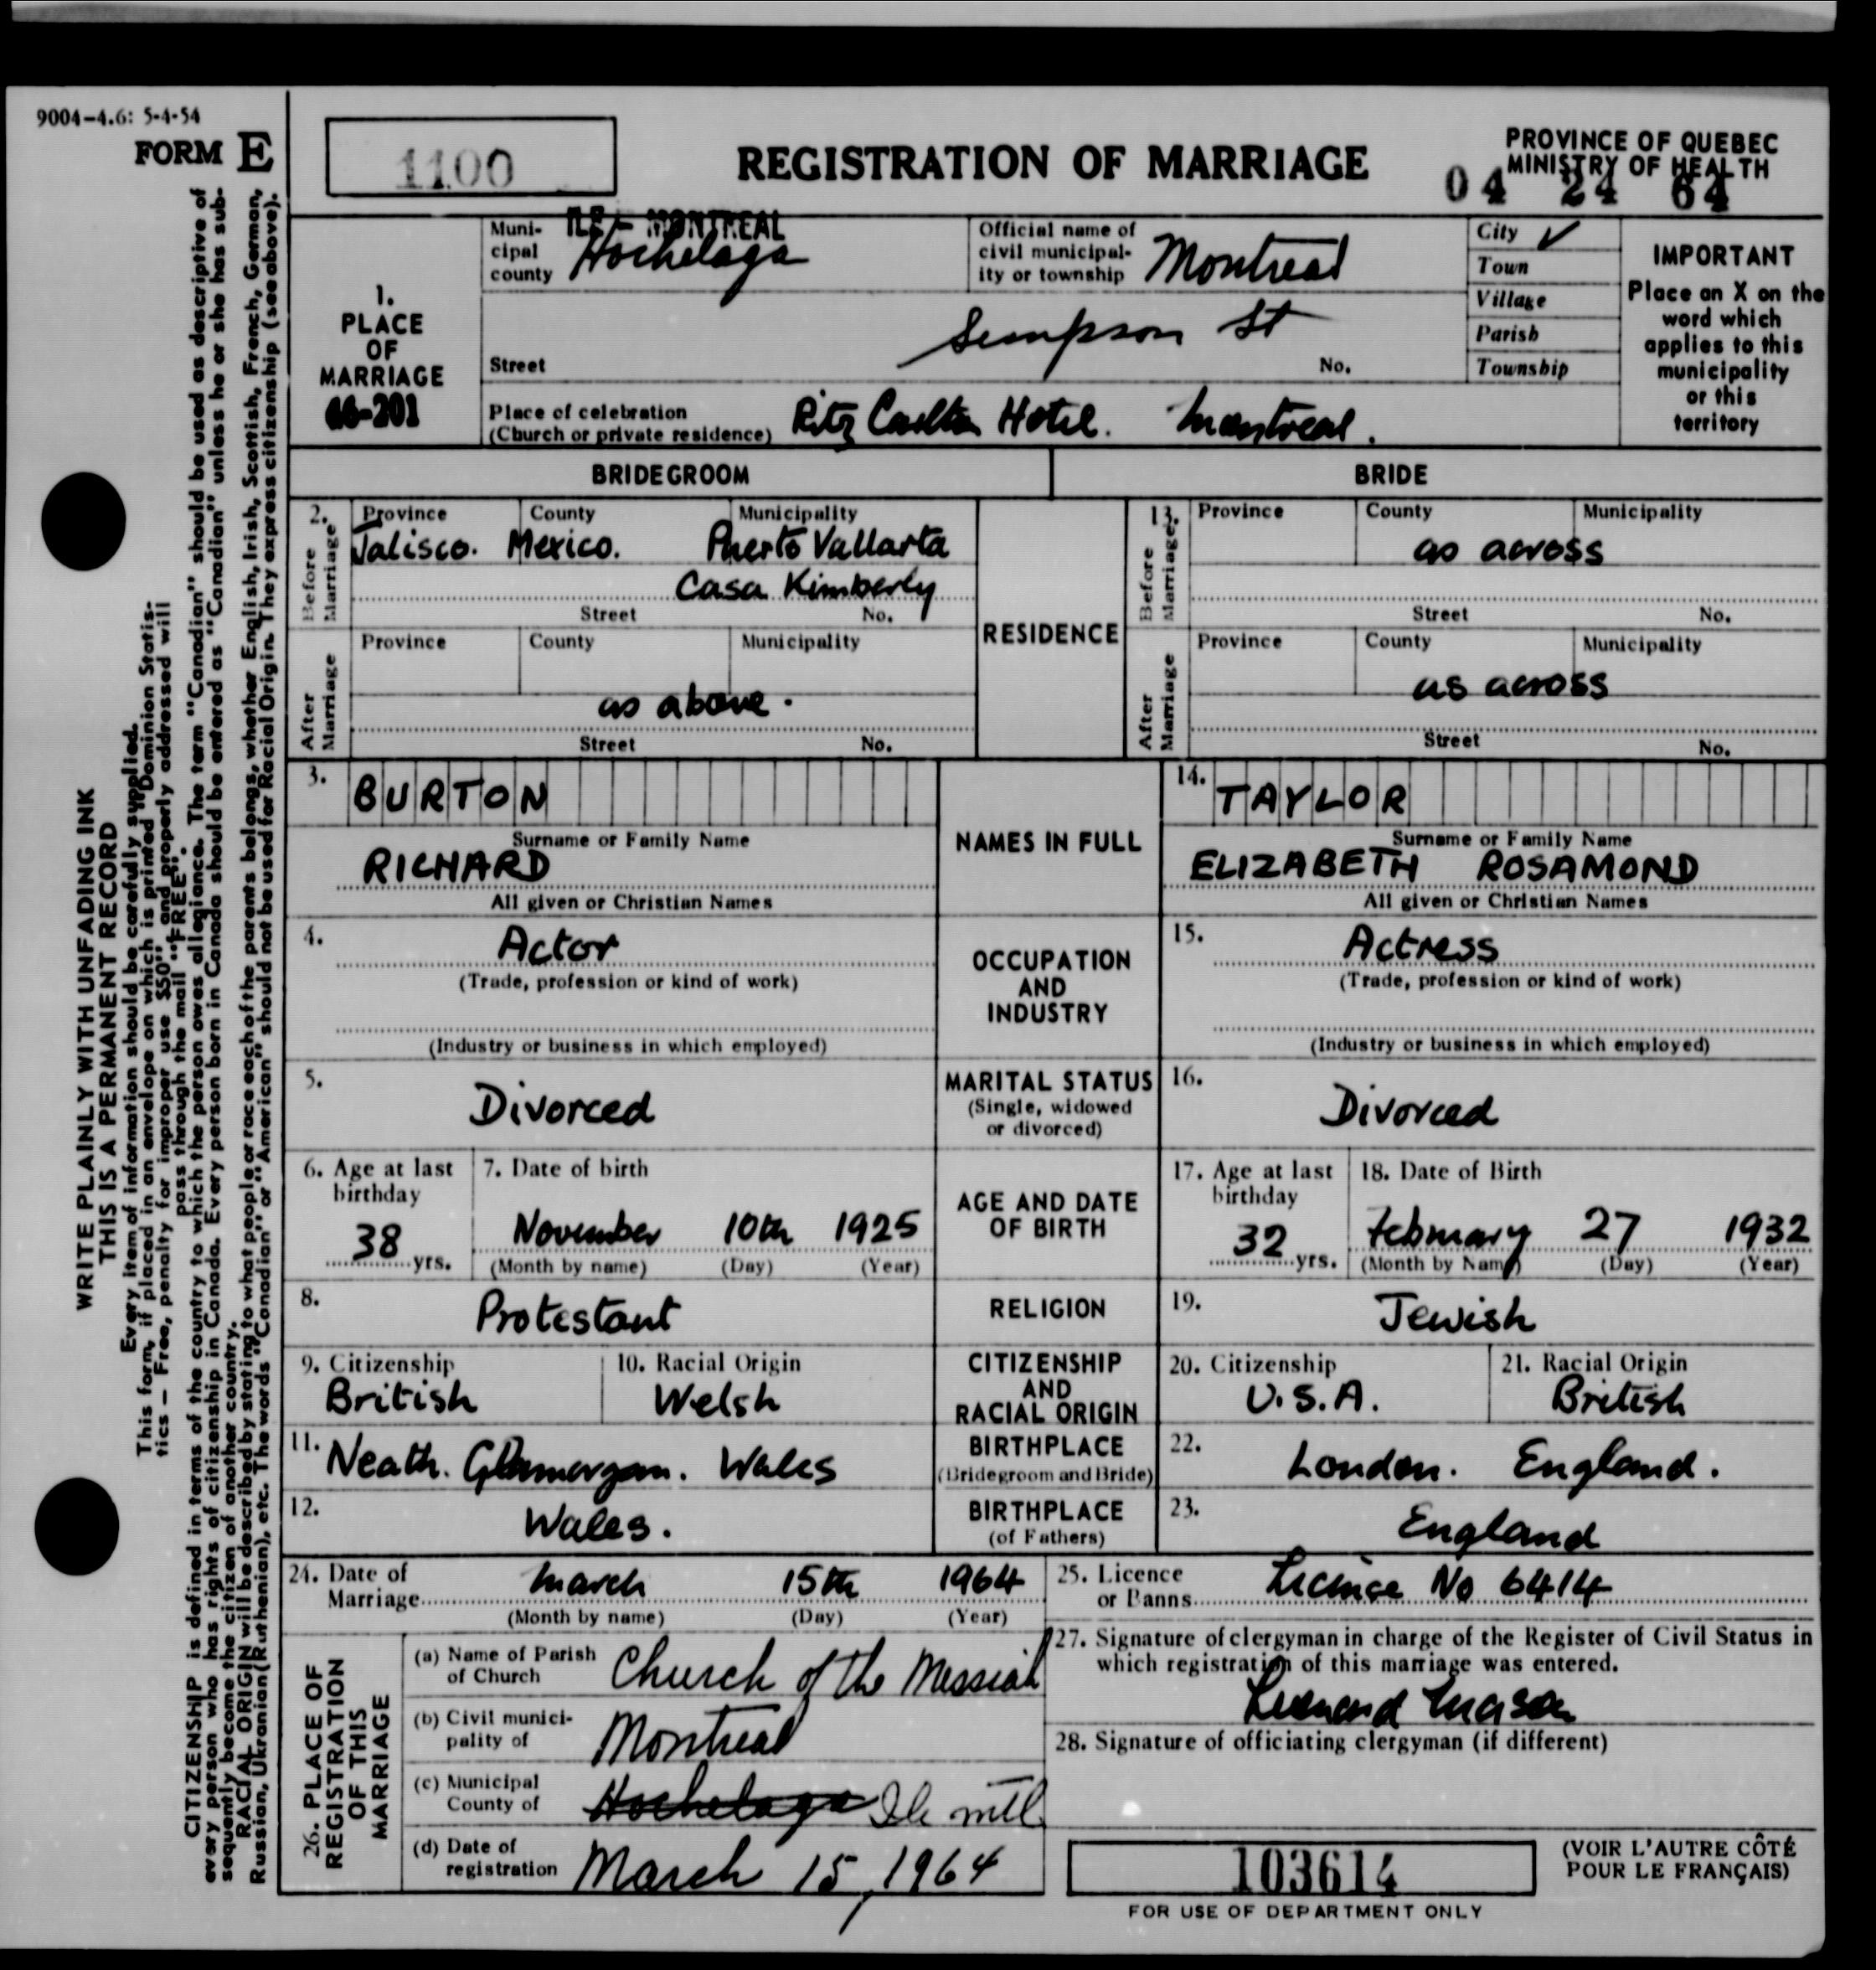 9004-4.6: 5-4-54
FORM E
1100
REGISTRATION OF MARRIAGE
PROVINCE OF QUEBEC
MINISTRY OF HEALTH
04 24 64
1.
PLACE
OF
MARRIAGE
66-201
Muni-
cipal
county
ILE - MONTREAL
Hochelaga
Official name of
civil municipal-
ity or township
Montreal
City ✓
Town
Village
Parish
Township
IMPORTANT
Place an X on the
word which
applies to this
municipality
or this
territory
Simpson St
Street No.
Place of celebration
(Church or private residence)
Ritz Carlton Hotel. Montreal.
BRIDEGROOM
BRIDE
2.
Before
Marriage
Province County Municipality
Jalisco. Mexico. Puerto Vallarta
Casa Kimberly
Street No.
After
Marriage
Province County Municipality
as above.
Street No.
RESIDENCE
13.
Before
Marriage
Province County Municipality
as across
Street No.
After
Marriage
Province County Municipality
as across
Street No.
3.
BURTON
Surname or Family Name
RICHARD
All given or Christian Names
NAMES IN FULL
14.
TAYLOR
Surname or Family Name
ELIZABETH ROSAMOND
All given or Christian Names
4.
Actor
(Trade, profession or kind of work)
(Industry or business in which employed)
OCCUPATION
AND
INDUSTRY
15.
Actress
(Trade, profession or kind of work)
(Industry or business in which employed)
5.
Divorced
MARITAL STATUS
(Single, widowed
or divorced)
16.
Divorced
6. Age at last
birthday
38 yrs.
7. Date of birth
November 10th 1925
(Month by name) (Day) (Year)
AGE AND DATE
OF BIRTH
17. Age at last
birthday
32 yrs.
18. Date of Birth
February 27 1932
(Month by Name) (Day) (Year)
8.
Protestant
RELIGION
19.
Jewish
9. Citizenship
British
10. Racial Origin
Welsh
CITIZENSHIP
AND
RACIAL ORIGIN
20. Citizenship
U.S.A.
21. Racial Origin
British
11.
Neath. Glamorgan. Wales
BIRTHPLACE
(Bridegroom and Bride)
22.
London. England.
12.
Wales.
BIRTHPLACE
(of Fathers)
23.
England
24. Date of
Marriage
March 15th 1964
(Month by name) (Day) (Year)
25. Licence
or Banns
Licence No 6414
26. PLACE OF
REGISTRATION
OF THIS
MARRIAGE
(a) Name of Parish
of Church
Church of the Messiah
(b) Civil munici-
pality of
Montreal
(c) Municipal
County of
Hochelaga Ile mtl
(d) Date of
registration
March 15, 1964
27. Signature of clergyman in charge of the Register of Civil Status in
which registration of this marriage was entered.
Leonard Mason
28. Signature of officiating clergyman (if different)
103614
FOR USE OF DEPARTMENT ONLY
(VOIR L'AUTRE CÔTÉ
POUR LE FRANÇAIS)
WRITE PLAINLY WITH UNFADING INK
THIS IS A PERMANENT RECORD
Every item of information should be carefully supplied.
This form, if placed in an envelope on which is printed "Dominion Statis-
tics — Free, penalty for improper use $50" and properly addressed will
pass through the mail "FREE".
CITIZENSHIP is defined in terms of the country to which the person owes allegiance. The term "Canadian" should be used as descriptive of
every person who has rights of citizenship in Canada. Every person born in Canada should be entered as "Canadian" unless he or she has sub-
sequently become the citizen of another country.
RACIAL ORIGIN will be described by stating to what people or race each of the parents belongs, whether English, Irish, Scottish, French, German,
Russian, Ukranian (Ruthenian), etc. The words "Canadian" or "American" should not be used for Racial Origin. They express citizenship (see above).